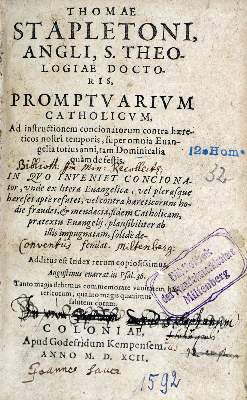 THOMAE
STAPLETONI,
ANGLI, S. THEO-
LOGIAE DOCTO-
RIS,
PROMPTVARIVM
CATHOLICVM,
Ad instructionem concionatorum contra hære-
ticos nostri temporis, super omnia Euan-
gelia totius anni, tam Dominicalia
quàm de festis.
12. Hom.
32.
Biblioth. Min: Recollect:
IN QVO INVENIET CONCIONA-
tor, vnde ex litera Euangelica, vel plerasque
hæreses aptè refutet, vel contra hæreticorum ho-
die fraudes, & mendacia, fidem Catholicam,
prætextu Euangelij, plausibiliter ab
illis impugnatam, solidè de-
Conventus Miltenberg:
Additus est Index rerum copiosissimus
Augustinus enarrat. in Psal. 36.
Tanto magis debemus commemorare vanitatem hæ-
reticorum, quanto magis quærimus
salutem eorum.
COLONIAE,
Apud Godefridum Kempensem.
ANNO M. D. XCII.
Miltenberg
Joannes Sauer
1592